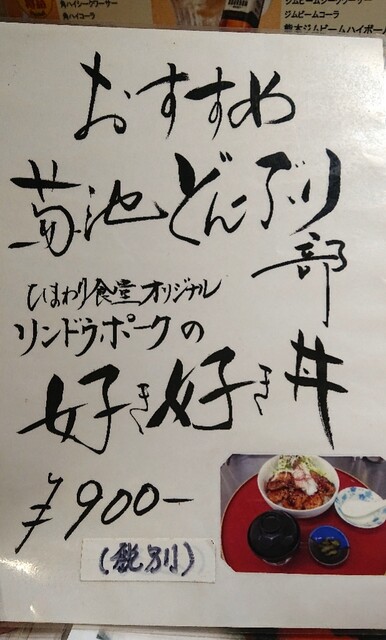 角ハイシークヮーサー
角ハイコーラ
ジムビームコーラ
熊本ジムビームハイボール
おすすめ
菊池どんぶり部
ひまわり食堂オリジナル
リンドウポークの
好き好き丼
¥900-
(税別)